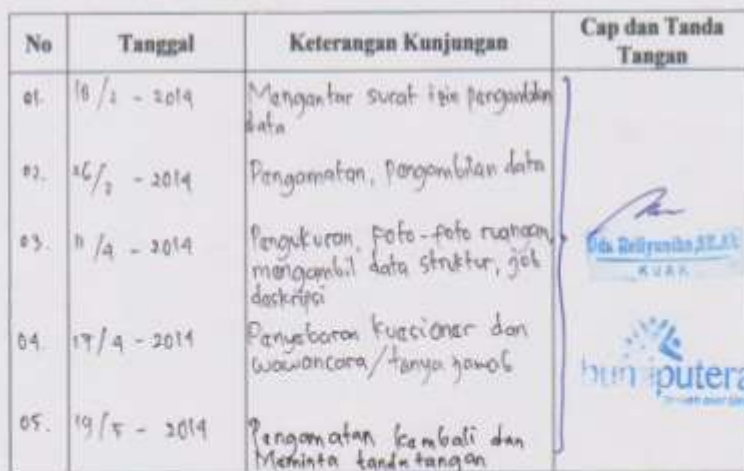 No Tanggal Keterangan Kunjungan Cap dan Tanda
Tangan
01. 18/2 - 2014 Mengantar surat izin pengambilan
data
02. 26/2 - 2014 Pengamatan, pengambilan data
03. 11/4 - 2014 Pengukuran, foto-foto ruangan,
mengambil data struktur, job
deskripsi
04. 17/4 - 2014 Penyebaran kuesioner dan
wawancara/tanya jawab
05. 19/5 - 2014 Pengamatan kembali dan
Meminta tanda tangan
KUAK
bumiputera